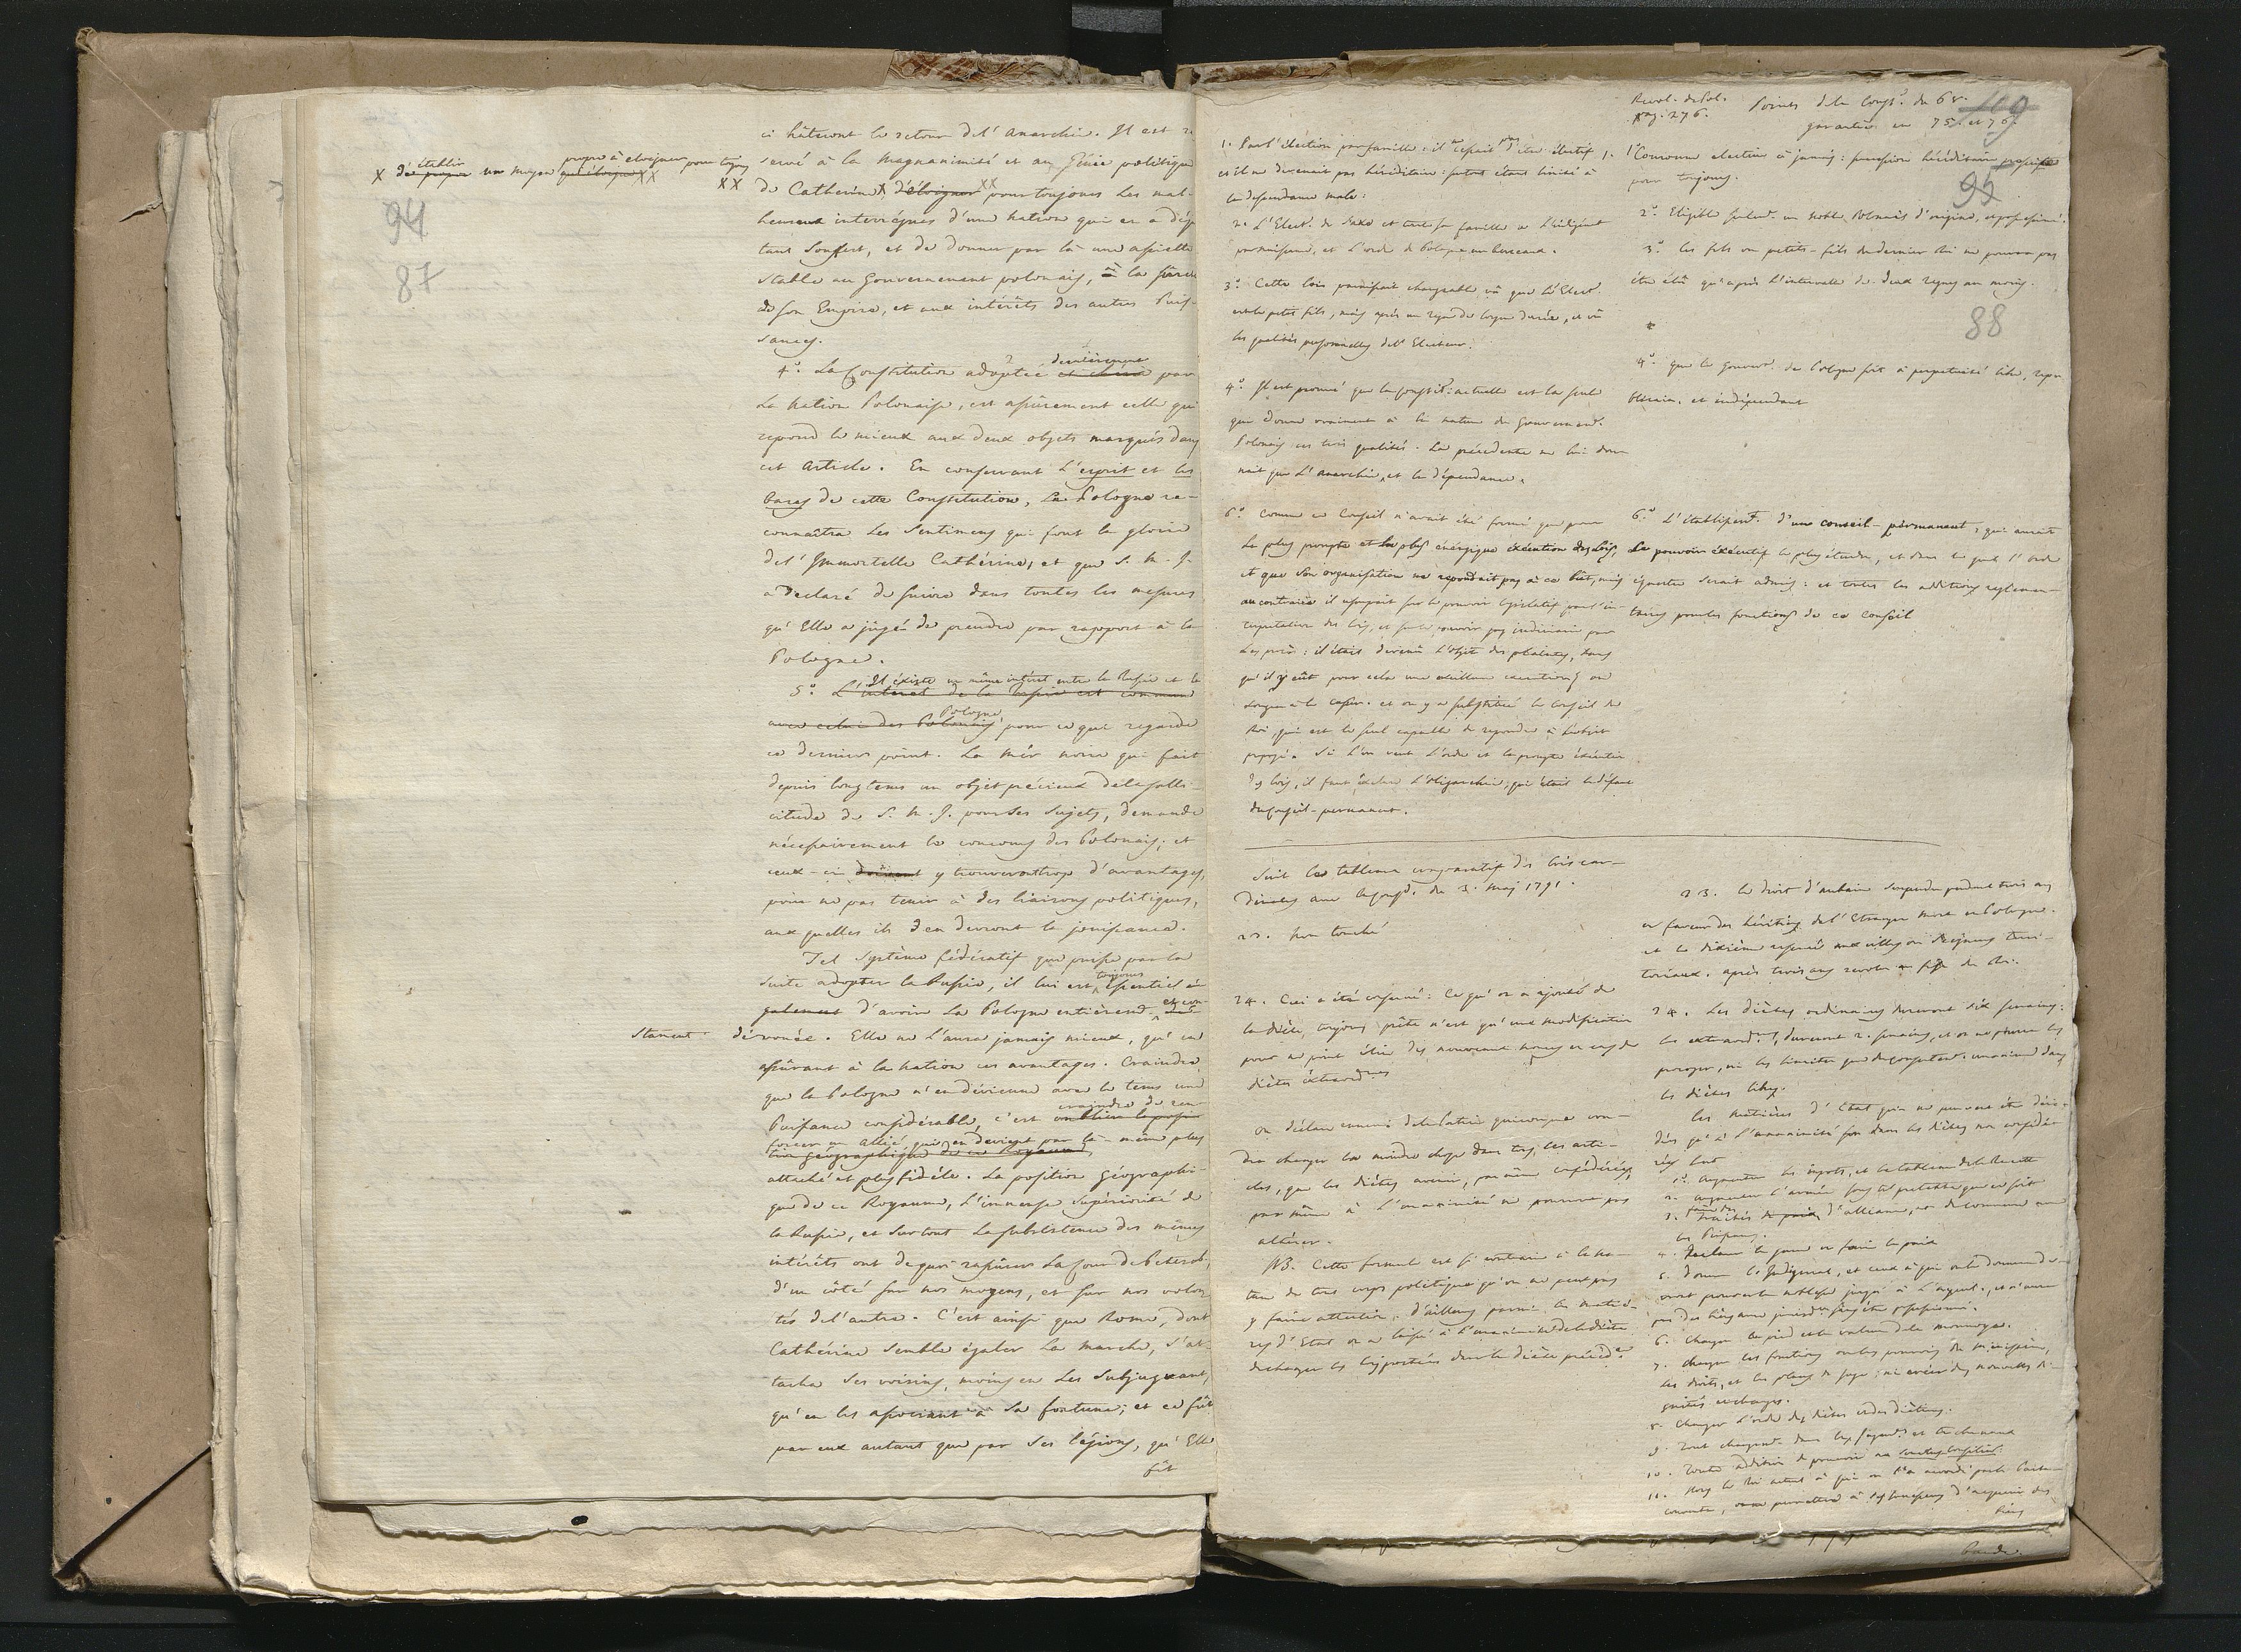 ci hâteront le retour de l'anarchie. Il est ré
servé à la magnanimité et au génie politique
de Catherine X d'éloigner XX pour toujours les mal-
X d'établir un moyen propre à éloigner pour toujours
XX
94
87
heureux interrègnes d'une nation qui en a déja
tant souffert, et de donner par là une assiette
stable au Gouvernement polonais, à la sureté
de son Empire, et aux intérêts des autres Puis-
sances.
4º. La Constitution adoptée dernièrement par
la nation Polonaise, est assûrement celle qui
repond le mieux aux deux objets marqués dans
cet article. En conservant l'esprit et les
bases de cette Constitution, la Pologne re-
connaîtra les sentimens qui font la gloire
de l'Immortelle Cathérine, et que S. M. I.
a declaré de suivre dans toutes les mesures
qu'Elle a jugé de prendre par rapport à la
Pologne.
Il existe un même intérêt entre la Russie et la
5º. L'intérêt de la Russie est commun
avec celui des Polonais
Pologne, pour ce qui regarde
ce dernier point. La mér noire qui fait
depuis longtems un objet précieux de la solli-
citude de S. M. I. pour ses sujets, demande
nécessairement le concours des Polonais; et
ceux-ci y trouveront trop d'avantages,
pour ne pas tenir à des liaisons politiques,
aux quelles ils en devront la jouissance.
Tel systême fédératif que puisse par la
suite adopter la Russie, il lui est toujours essentiel é-
galement d'avoir la Pologne entièrem.t et con-
stament dévouée. Elle ne l'aura jamais mieux, qu'en
assûrant à la nation ces avantages. Craindre
que la Pologne n'en devienne avec le tems une
Puissance considérable, c'est craindre de ren-
oublier la posi-
forcer un allié, qui en devient par là-même plus
tion géographique de ce Royaume,
attaché et plus fidèle. La position géographi-
que de ce Royaume, l'immense supériorité de
la Russie, et surtout la subsistence des mêmes
intérêts ont de quoi rassurer la Cour de Petersb:
d'un côté sur nos moyens, et sur nos volon-
tés de l'autre. C'est ainsi que Rome, dont
Cathérine semble égaler la marche, s'at-
tacha ses voisins, moins en les subjuguant,
qu'en les associant à sa fortune; et ce fût
par eux autant que par ses légions, qu'Elle
fût
Revol. de Pol.
pag. 276.
Points de la Const. de 68.
garantie en 75. et 76.
109
95
88
1. Par l'élection par famille: il ne cessait pas d'être électif
et il ne devenait pas héréditaire: surtout étant limité à
la descendance male:
2. L'Elect. de Saxe et toute sa famille a l'indigénat
3º. Cette lois paraissait changeable vû que l'Elect.
est le petit fils, mais après un regne de longue durée, et vû
les qualités personnelles de l'Electeur.
4º. Il est prouvé que la constit: actuelle est la seule
qui donne vraiment à la nature du gouvernem.t
Polonais ces trois qualités. La précédente ne lui don-
nait que l'anarchie, et la dépendance.
6º. Comme ce Conseil n'avait été formé que pour
la plus prompte et la plus énérgique éxécution des lois,
et que son organisation ne repondait pas à ce bût, mais
au contraire il usurpait sur le pouvoir législatif par l'in-
terpretation des lois, et sur le pouvoir judiciaire par
il était devenu l'objet des plaintes, sans
qu'il y eût pour cela une meilleure éxécution; on
et on y a substitué le Conseil du
Roi, qui est le seul capable de repondre à l'objet
proposé. Si l'on veut l'ordre et la prompte éxécution
des lois, il faut exclure l'oligarchie, qui était le défaut
du Conseil-permanent.
1. Couronne elective à jamais: succession héréditaire proscrite
pour toujours.
2º. Eligible seulem.t un noble Polonais d'origine, et possessioné.
3º. les fils ou petits-fils du dernier Roi ne pourra pas
être élû qu'après l'intervale de deux regnes au moins.
4º. que le Gouver.t de Pologne soit à perpetuité libre, repu-
blicain, et indépendant
6º. L'établissem.t d'un conseil-permanent, qui aurait
le pouvoir éxécutif le plus étendu, et dans le quel l'ordre
équestre serait admis: et toutes les additions reglemen-
taires pour les fonctions de ce conseil
Suit le tableau comparatif des lois car-
dinales avec la const. du 3. mai 1791.
23. Non touché
24. Ceci a été conservé: Ce qu'on a ajouté de
la diète, toujours prête n'est qu'une modification
pour ne point élire des nouveaux nonces en cas de
diètes éxtraord.res
On déclare ennemi de la Patrie quiconque vou-
dra changer la moindre chose dans tous les arti-
cles, que les diètes avenir, pas même confédérées,
pas même à l'unanimité ne pourront pas
altérer.
NB. Cette formule est si contraire à la na-
ture de tout corps politique qu'on ne peut pas
y faire attention. d'ailleurs parmi les matiè-
res d'Etat on a laissé à l'unanimité de la diète
de changer les lois portées dans la diète précéd.te
23. le droit d'aubaine suspendu pendant trois ans
en faveur des héritiers de l'Etranger mort en Pologne.
et le dixième reservé aux villes ou Seigneurs terri-
toriaux. après trois ans revolus au fisc du Roi.
24. Les diètes ordinaires dureront six semaines:
les extraord.res dureront 2. semaines, et on ne pourra les
proroger, ni les limiter que du consentem.t unanime dans
les diètes libres.
les matières d'Etat qui ne peuvent être déci-
dées qu'à l'unanimité son dans les diètes non confédé-
rées sont
1º. Augmenter les impots, et le tableau de la Recette
2. augmenter l'armée sous tel pretexte que ce soit
3. faire des traités de paix, d'alliance, ou de commerce avec
les Puissances.
4. Declarer la guerre ou faire la paix
5. Donner l'Indigenat,
6. Changer le pied et la valeur de la monnoye.
7. changer les fonctions ou les pouvoirs du ministère,
8. Changer l'ordre des diètes et des diètines.
9. Tout changem.t dans les
10. Toute addition de pouvoir au senatus consilium.
11. Hors le Roi actuel à qui on l'a accordé
on ne permettra à ses successeurs d'acquerir des
biens